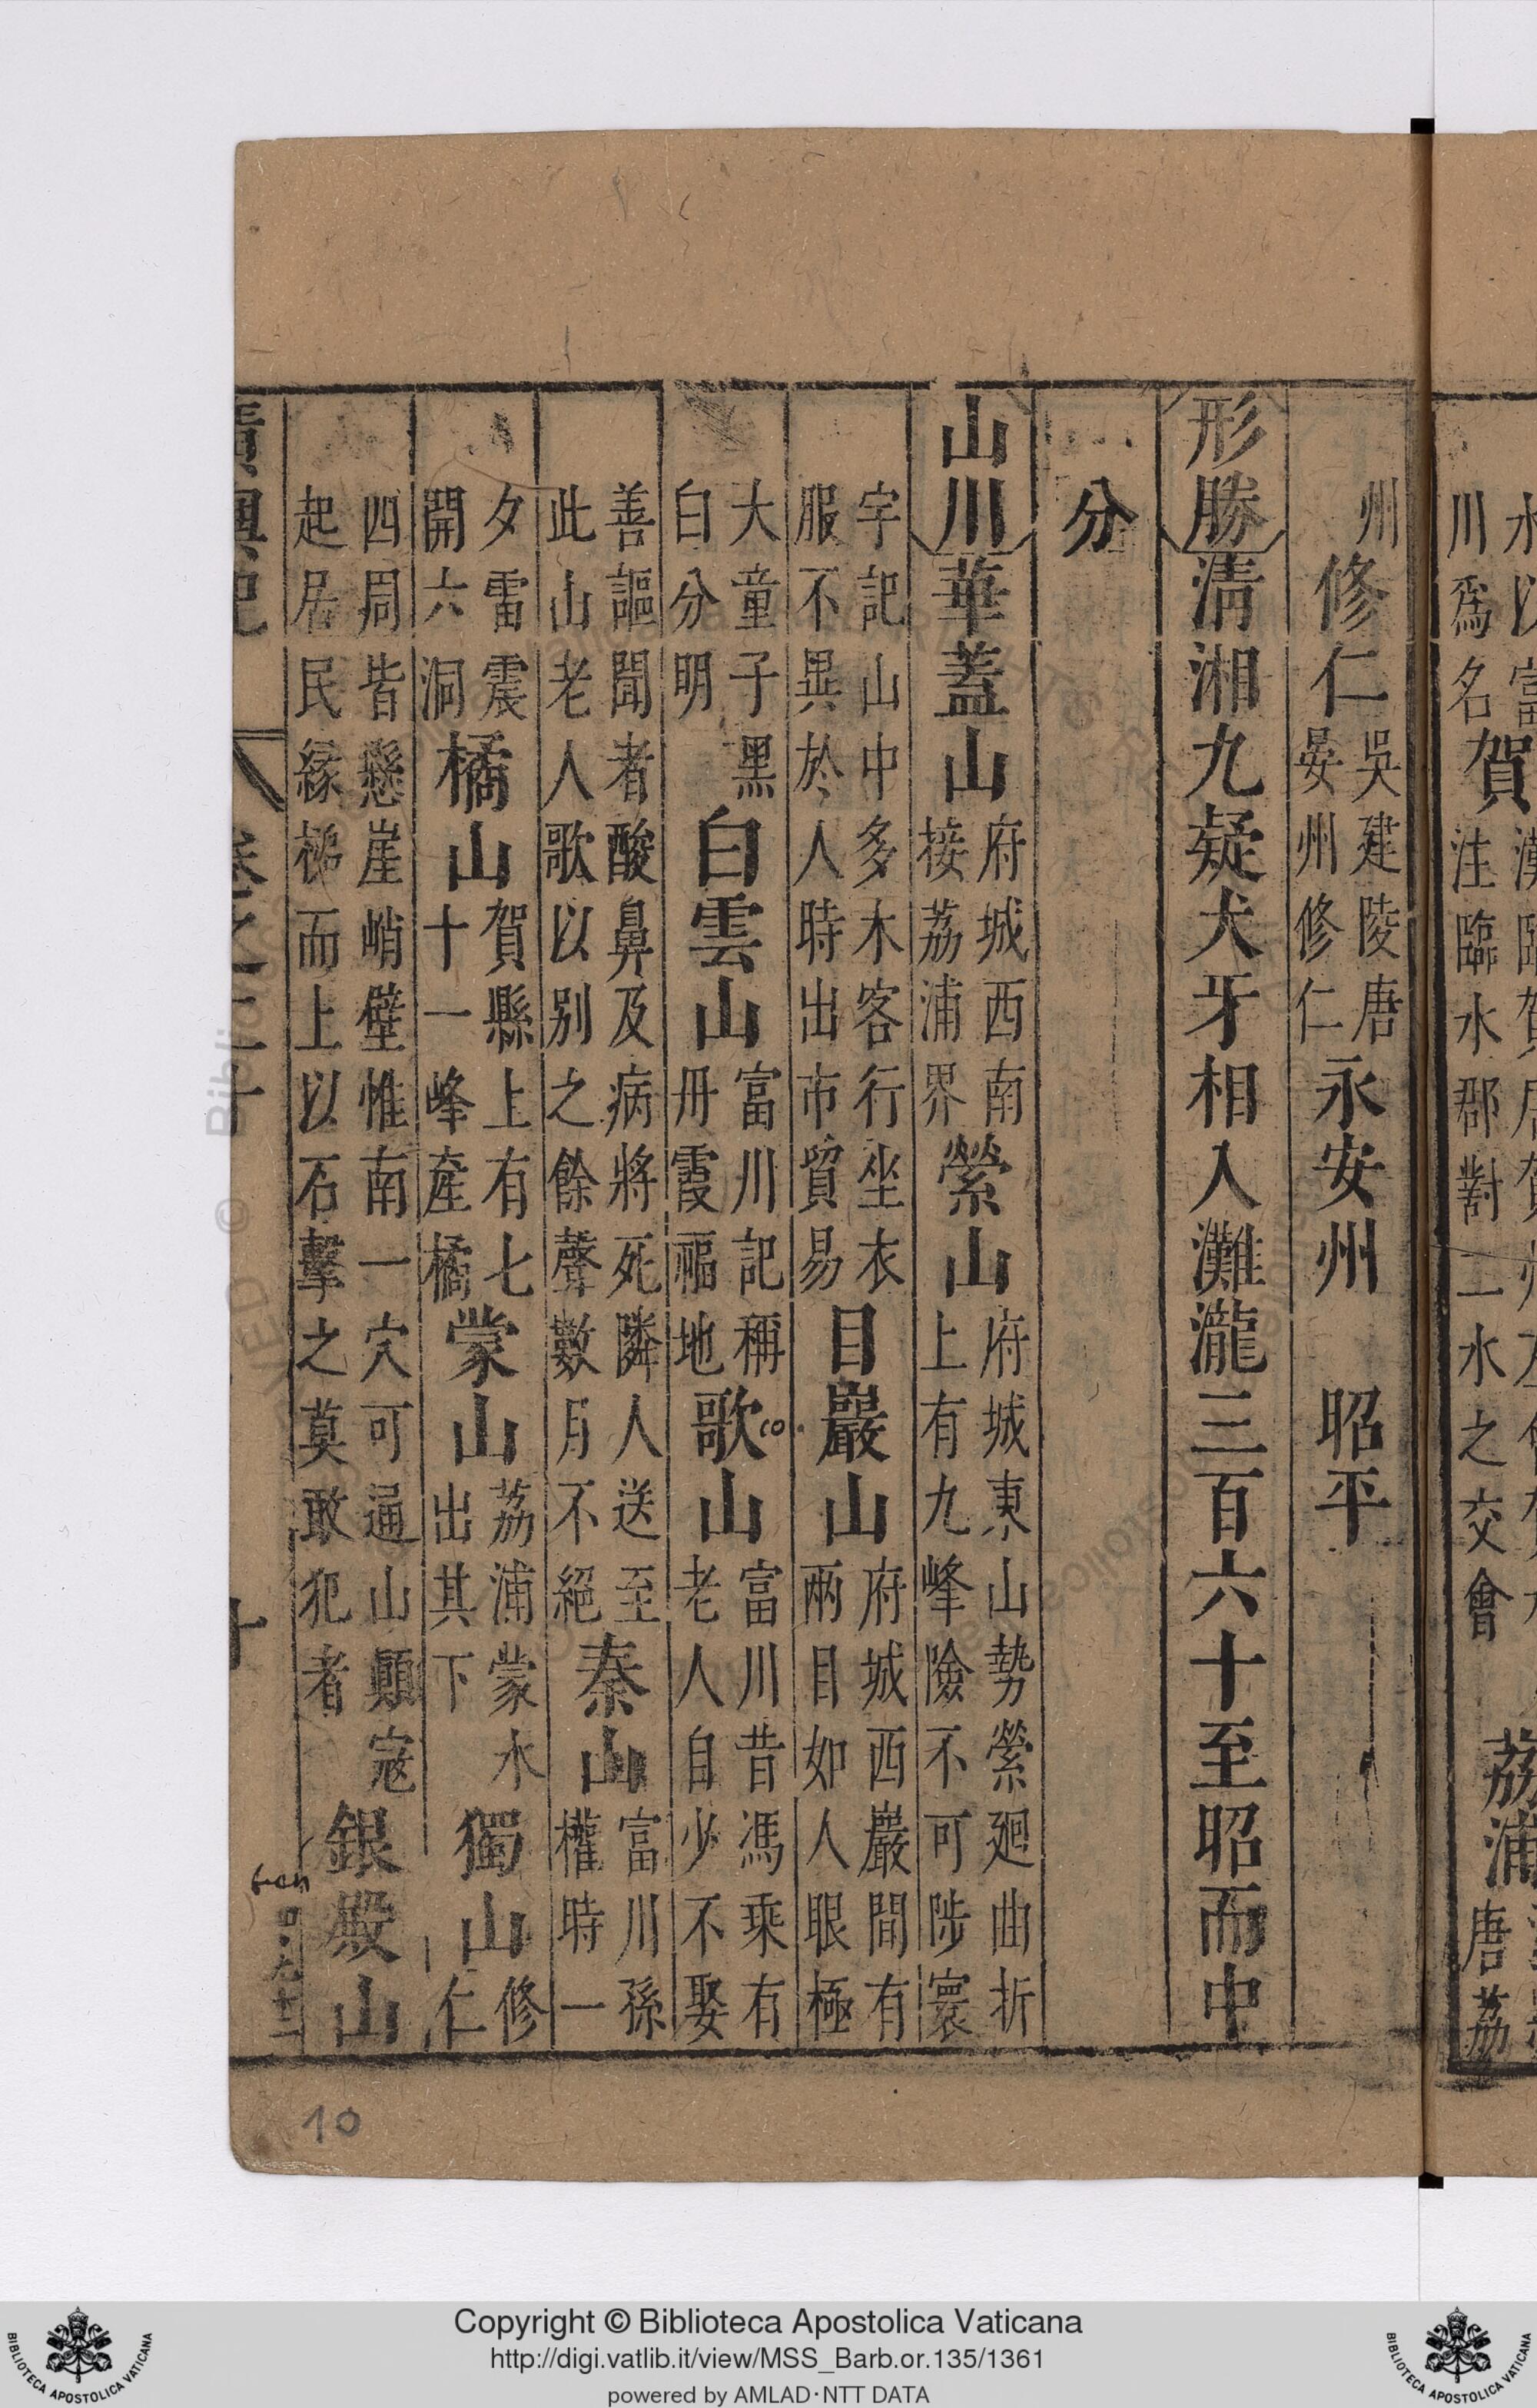 川爲名
賀
注臨水郡對二水之交會
荔浦
唐荔
州
修仁
吳建陵唐
晏州修仁
永安州 昭平
形勝
淸湘九疑犬牙相入灘瀧三百六十至昭而中
分
山川
華蓋山
府城西南
接荔浦界
縈山
府城東山勢縈廻曲折
上有九峰險不可陟寰
宇記山中多木客行坐衣
服不異於人時出市貿易
目巖山
府城西巖間有
兩目如人眼極
大童子黑
白分明
白雲山
富川記稱
丹霞福地
歌山
富川昔馮乘有
老人自少不娶
善謳聞者酸鼻及病將死隣人送至
此山老人歌以别之餘聲數月不絕
秦山
富川孫
權時一
夕雷震
開六洞
橘山
賀縣上有七
十一峰產橘
蒙山
荔浦蒙水
出其下
獨山
修
仁
四周皆懸崖峭壁惟南一穴可通山顚寇
起居民緣梯而上以石擊之莫敢犯者
銀殿山
廣輿記
卷之二十
十
10
Copyright © Biblioteca Apostolica Vaticana
http://digi.vatlib.it/view/MSS_Barb.or.135/1361
powered by AMLAD·NTT DATA
BIBLIOTECA APOSTOLICA VATICANA
BIBLIOTECA APOSTOLICA VATICANA